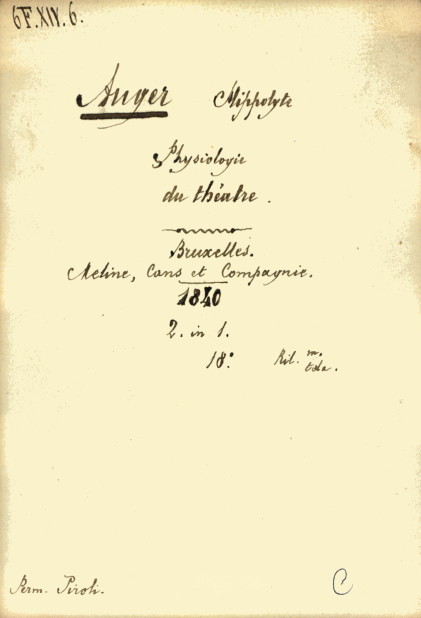 6F.XIV.6.
Auger Hippolyte
Physiologie
du théatre.
Bruxelles.
Meline, Cans et Compagnie.
1840
2. in 1.
18.° Ril. m. tela.
Perm. Piroli. C